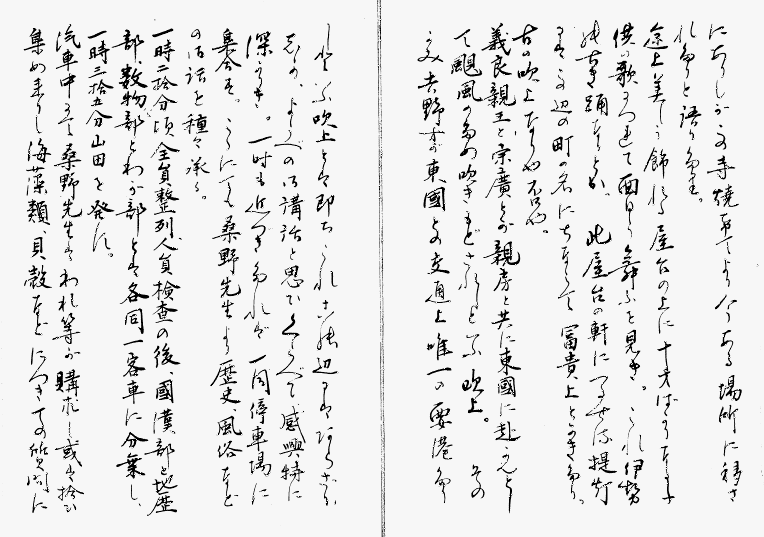 にありしが、この寺焼けてより今ある場所に移さ
れたりと語りたまふ。
途上美しう飾れる屋台の上に十才ばかりなる子
供の歌につれて面白う舞ふを見き。これ伊勢
踊なりとか。此屋台の軒につるせる提灯
にこの辺の町の名にちなみて冨貴上とかきたり。
古の吹上なりや否や。
義良親王を宗廣とか親房と共に東國に赴かんとし
て颶風のため吹きもどされしと云ふ吹上。その
吉野が東國との交通上唯一の要港なり
しと云ふ吹上とは即ちこれ此辺にはあらざるか
など、よべの御講話と思ひくらべて、感興特に
深かりき。一時も近づきたれば一同停車場に
集合す。こゝにても桑野先生より歴史、風俗など
の御話を種々承る。
一時二拾分頃全員整列、人員検査の後、國漢部と地歴
部、数物部とわが部とは各同一客車に分乗し、
一時三拾五分山田を発す。
汽車中にて桑野先生はわれ等が購求し或は拾ひ
集め来りし海藻類、貝殻などにつきての質問に